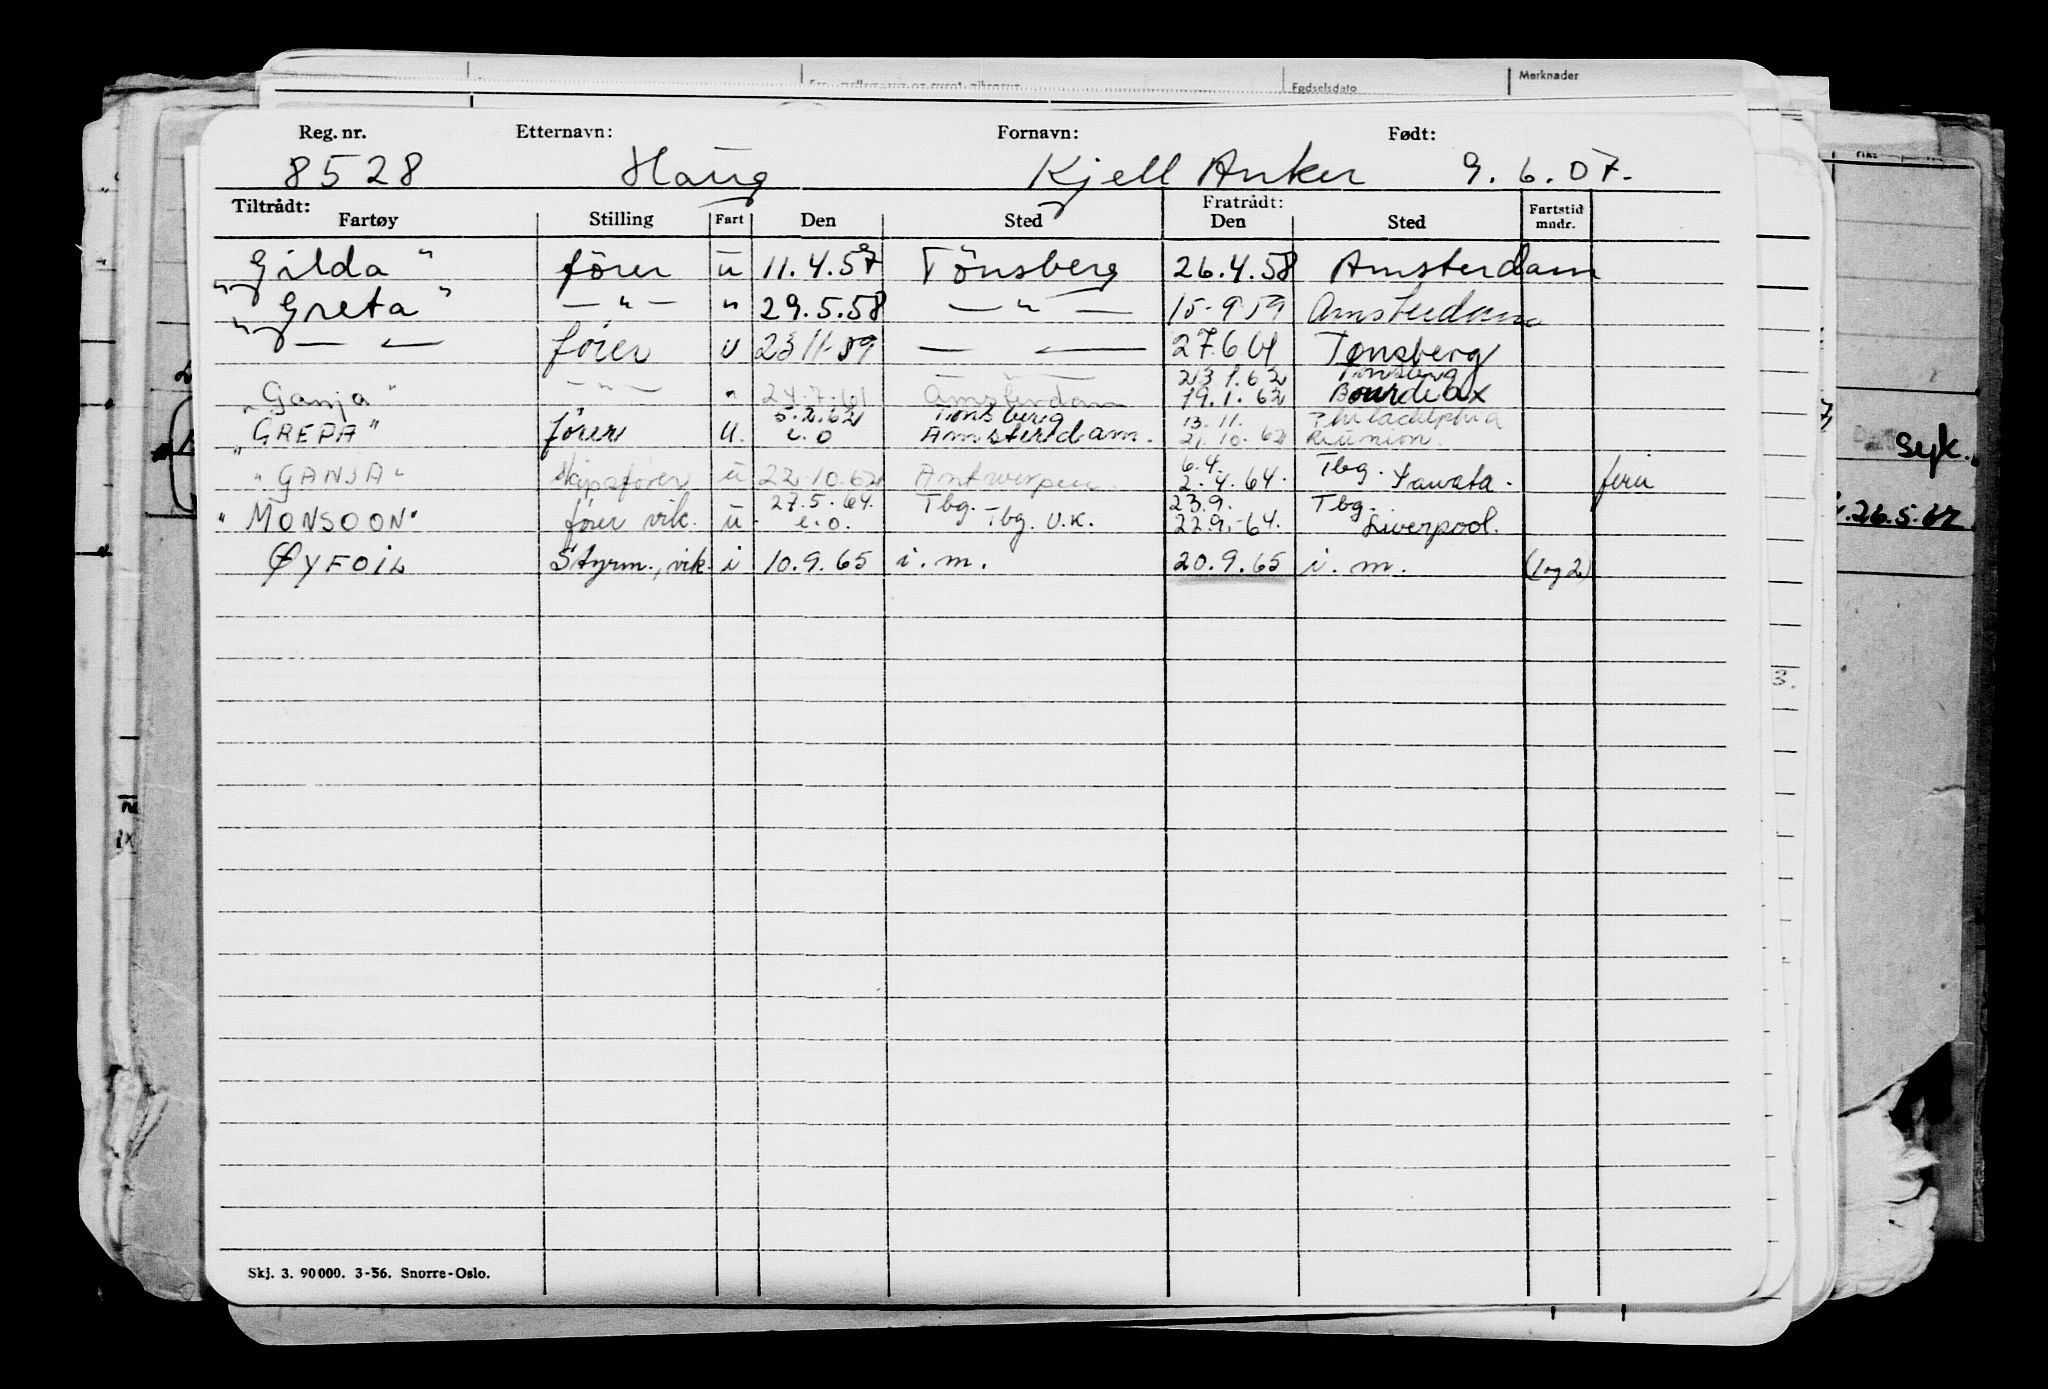 Merknader
Fødselsdato
Reg. nr. Etternavn: Fornavn: Født:
8528 Haug Kjell Anker 9.6.07.
Tiltrådt: Fratrådt:
Fartøy Stilling Fart Den Sted Den Sted Fartstid mndr.
"Gilda" fører u 11.4.57 Tönsberg 26.4.58 Amsterdam
"Greta" — " — " 29.5.58 — " — 15-9 59 Amsterdam
" — — fører u 23 11-59 — — 27.6.61 Tønsberg
23 1.62 Tønsberg
"Ganja" — " — " 24.7.61 Amsterdam 19.1.62 Bourdeax
5.2.62 Tønsberg 13.11. Philadelphia
"GREPA" fører u. e.o Amsterdam. 21.10.62 Reunion.
6.4. Tbg.
"GANJA" Skipsfører u 22.10.62 Antwerpen 2.4.64. ferie
27.5.64. Tbg. 23.9. Tbg.
"MONSOON" fører vik. u. e.o. Tbg. U.K. 22.9.-64. Liverpool.
ØYFOIL Styrm., vik. i 10.9.65 i.m. 20.9.65 i.m. (log 2)
Syk.
26.5.62
3.
Skj. 3. 90000. 3-56. Snorre-Oslo.